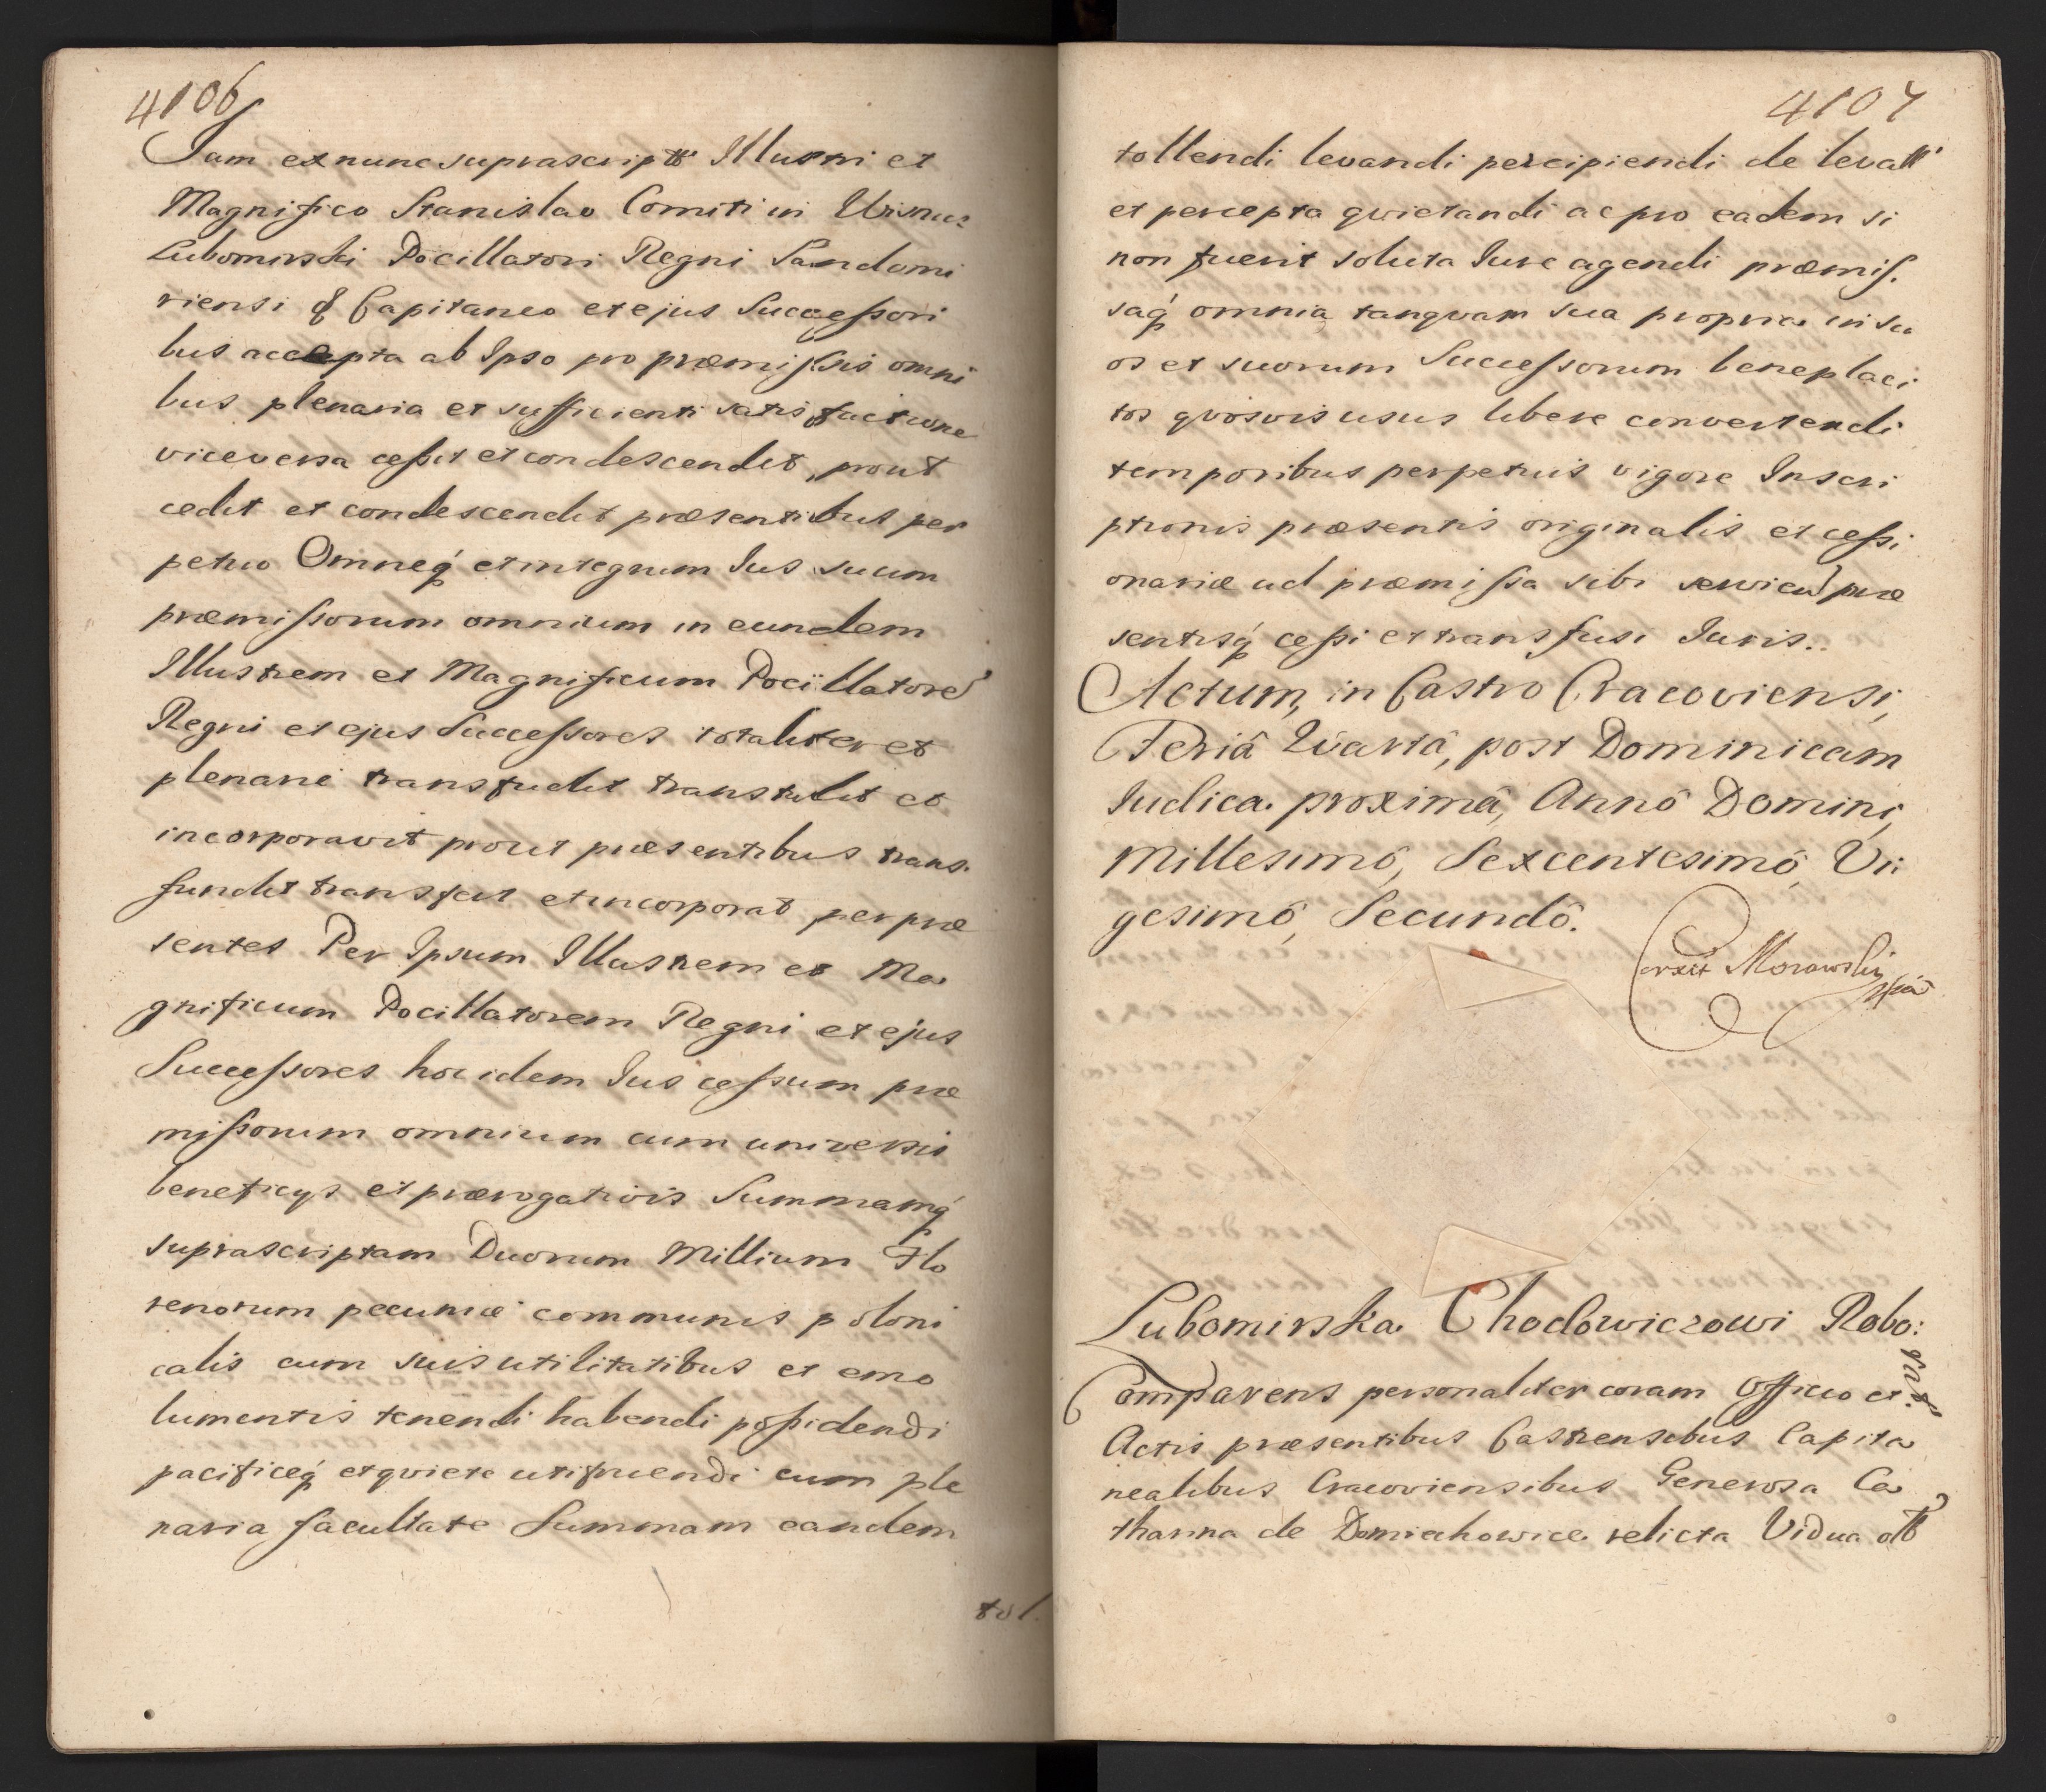 4106
Jam ex nunc suprascripto Illustri et
Magnifico Stanislao Comiti in Wisnic:
Lubomirski Pocillatori Regni Sandomi
riensi & Capitaneo et ejus Successori
bus accepta ab Ipso pro præmissis omni
bus plenaria et sufficienti satisfactione
viceversa cessit et condescendit, prout
cedit et condescendit præsentibus per
petuo Omneq́ et integrum Jus suum
præmissorum omnium in eundem
Illustrem et Magnificum Pocillatore
Regni et ejus Successores totaliter et
plenarie transfudit transtulit et
incorporavit prout præsentibus trans.
fundit transfert et incorporat per præ
sentes Per Ipsum Illustrem et Ma
gnificum Pocillatorem Regni et ejus
Successores hoc idem Jus cessum præ
missorum omnium cum universis
beneficys et prærogativis Summamq́
suprascriptam Duorum Millium Flo
renorum pecuniæ communis poloni
calis cum suis utilitatibus et emo
lumentis tenendi habendi possidendi
pacificeq́ et qviete utifruendi cum ple
naria facultate Summam eandem
tol.
4107
tollendi levandi percipiendi de levatt
et percepta qvietandi ac pro eadem si
non fuerit soluta Jure agendi præmis.
saq́ omnia tanqvam sua propria in su
os et suorum Successorum beneplaci
tos qvosvis usus libere convertendi
temporibus perpetuis vigore Inscri
ptionis præsentis originalis et cessi
onariæ ad præmissa sibi servien præ
sentisq́ cessi et transfusi Juris.
Actum, in Castro Cracoviensi,
Feriâ Qvartâ, post Dominicam
Judica. proximâ, Annô Domini,
Millesimô, Sexcentesimô, Vi:
gesimô, Secundô.
Corxit Morawski
mpia
Lubomirska Chodowiczowi Robo:
rat:
Comparens personaliter coram Officio et
Actis præsentibus Castrensibus Capita
nealibus Cracoviensibus Generosa Ca
tharina de relicta Vidua olt